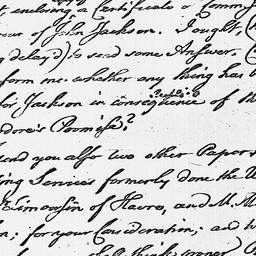 t, enclosing a Certificate & Comm
our of John Jackson. I ought, (
g delay'd) to send some Answer. (
form me whether any thing has b
for Jackson in consequence of th
dore's Promise?
send you also two other Papers
ing Services formerly done the U
Limousin of Havre, and M. M
n; for your Consideration; and w
shall think proper